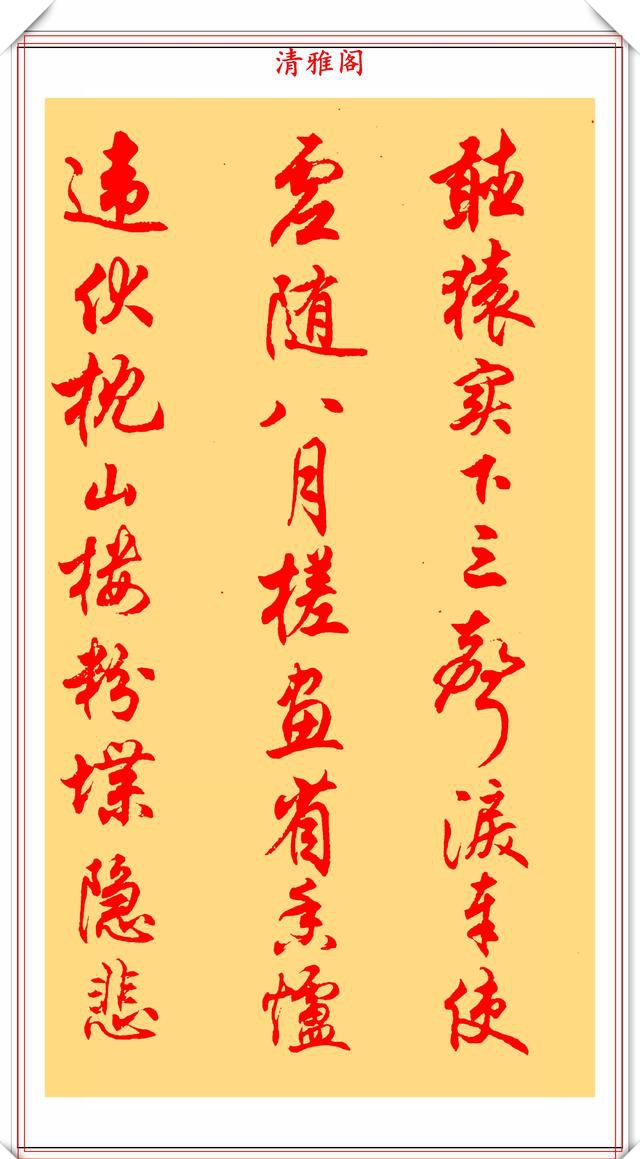 清雅阁
聼猿实下三声淚奉使
虚随八月槎画省香爐
违伏枕山楼粉堞隐悲